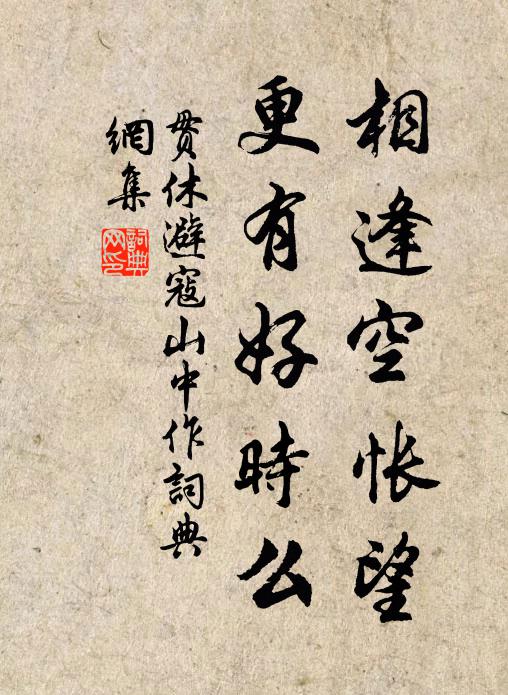 相逢空悵望
更有好時么
贯休避寇山中作詞典
網集
詞典
网印